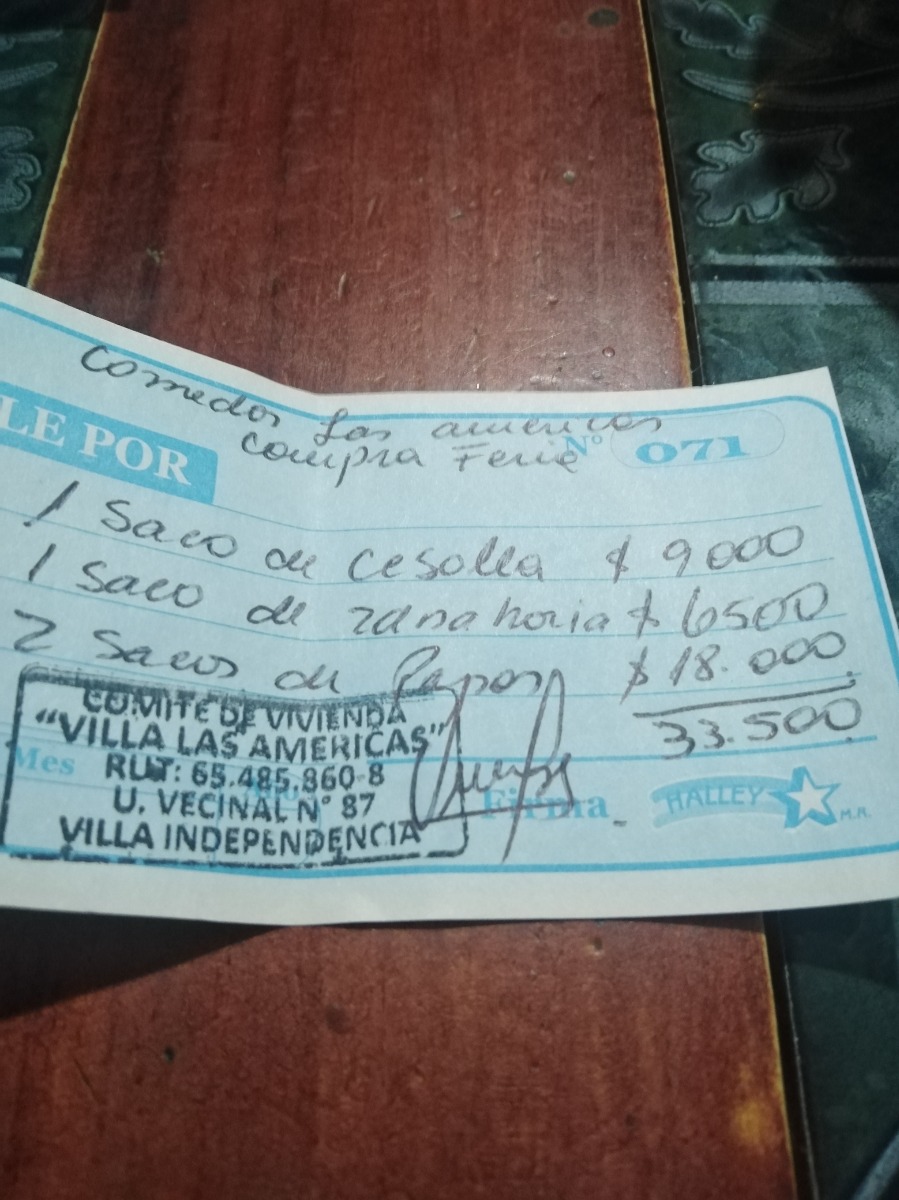 Comedor Las americas
LE POR
compra Feria
Nº 071
1 Saco de cesolla $ 9000
1 Saco de zanahoria $ 6500
2 Sacos de Papas $ 18.000
33.500
COMITE DE VIVIENDA
"VILLA LAS AMERICAS"
Mes
RUT: 65.485.860-8
U. VECINAL N° 87
VILLA INDEPENDENCIA
Firma
HALLEY M.R.